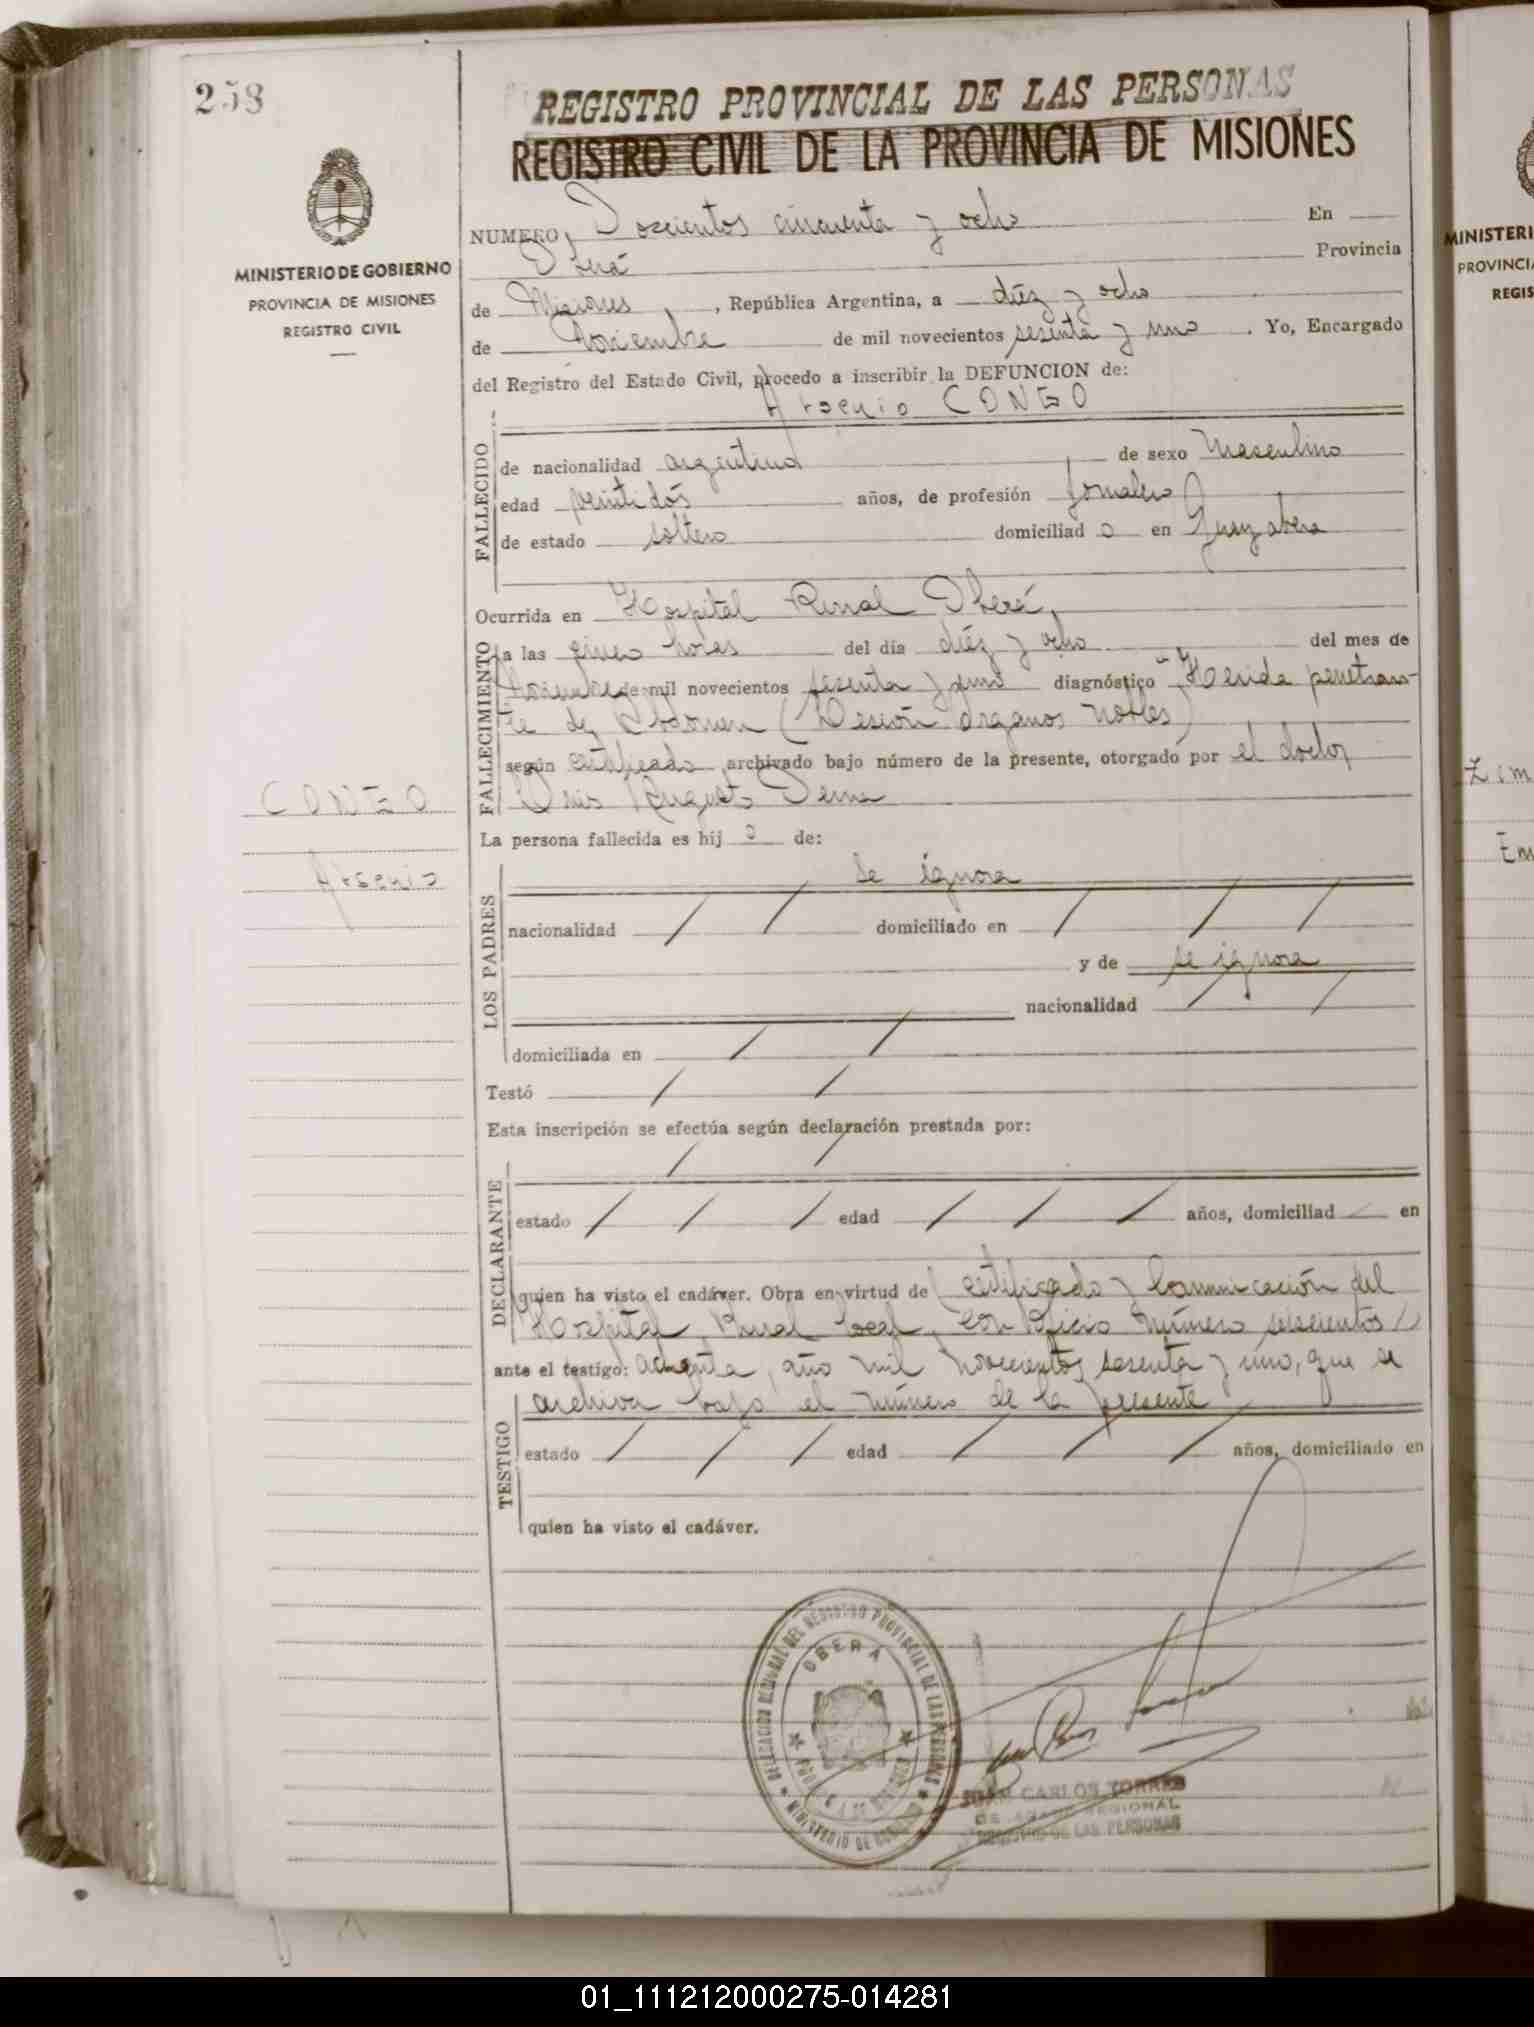 258
REGISTRO PROVINCIAL DE LAS PERSONAS
REGISTRO CIVIL DE LA PROVINCIA DE MISIONES
MINISTERIO DE GOBIERNO
PROVINCIA DE MISIONES
REGISTRO CIVIL
NUMERO Doscientos cincuenta y ocho En
Oberá Provincia
de Misiones, República Argentina, a diéz y ocho
de Noviembre de mil novecientos sesenta y uno. Yo, Encargado
del Registro del Estado Civil, procedo a inscribir la DEFUNCION de:
Arsenio CONGO
FALLECIDO
de nacionalidad argentina de sexo Masculino
edad veintidós años, de profesión Jornalero
de estado soltero domiciliad o en Guayabera
FALLECIMIENTO
Ocurrida en Hospital Rural Oberá,
a las cinco horas del día diéz y ocho del mes de
Noviembre de mil novecientos sesenta y uno diagnóstico "Herida penetran-
te de Abdomen (Lesión órganos nobles)
según certificado archivado bajo número de la presente, otorgado por el doctor
Luis Augusto
CONGO
Arsenio
La persona fallecida es hij o de:
LOS PADRES
se ignora
nacionalidad / / domiciliado en / / /
y de se ignora
nacionalidad / /
domiciliada en / /
Testó / /
Esta inscripción se efectúa según declaración prestada por:
DECLARANTE
/ /
estado / / / edad / / / años, domiciliad / en
quien ha visto el cadáver. Obra en virtud de certificado y comunicación del
Hospital Rural local, con Oficio número seiscientos
ante el testigo: ochenta, año mil novecientos sesenta y uno, que se
archiva bajo el número de la presente
TESTIGO
estado / / / edad / / / años, domiciliado en
quien ha visto el cadáver.
DELEGACION REGIONAL DEL REGISTRO PROVINCIAL DE LAS PERSONAS
OBERA
MINISTERIO DE GOBIERNO
JUAN CARLOS TORRES
REGIONAL
REGISTRO DE LAS PERSONAS
MINISTERI
PROVINCIA
REGIS
Zim
Em
01_111212000275-014281